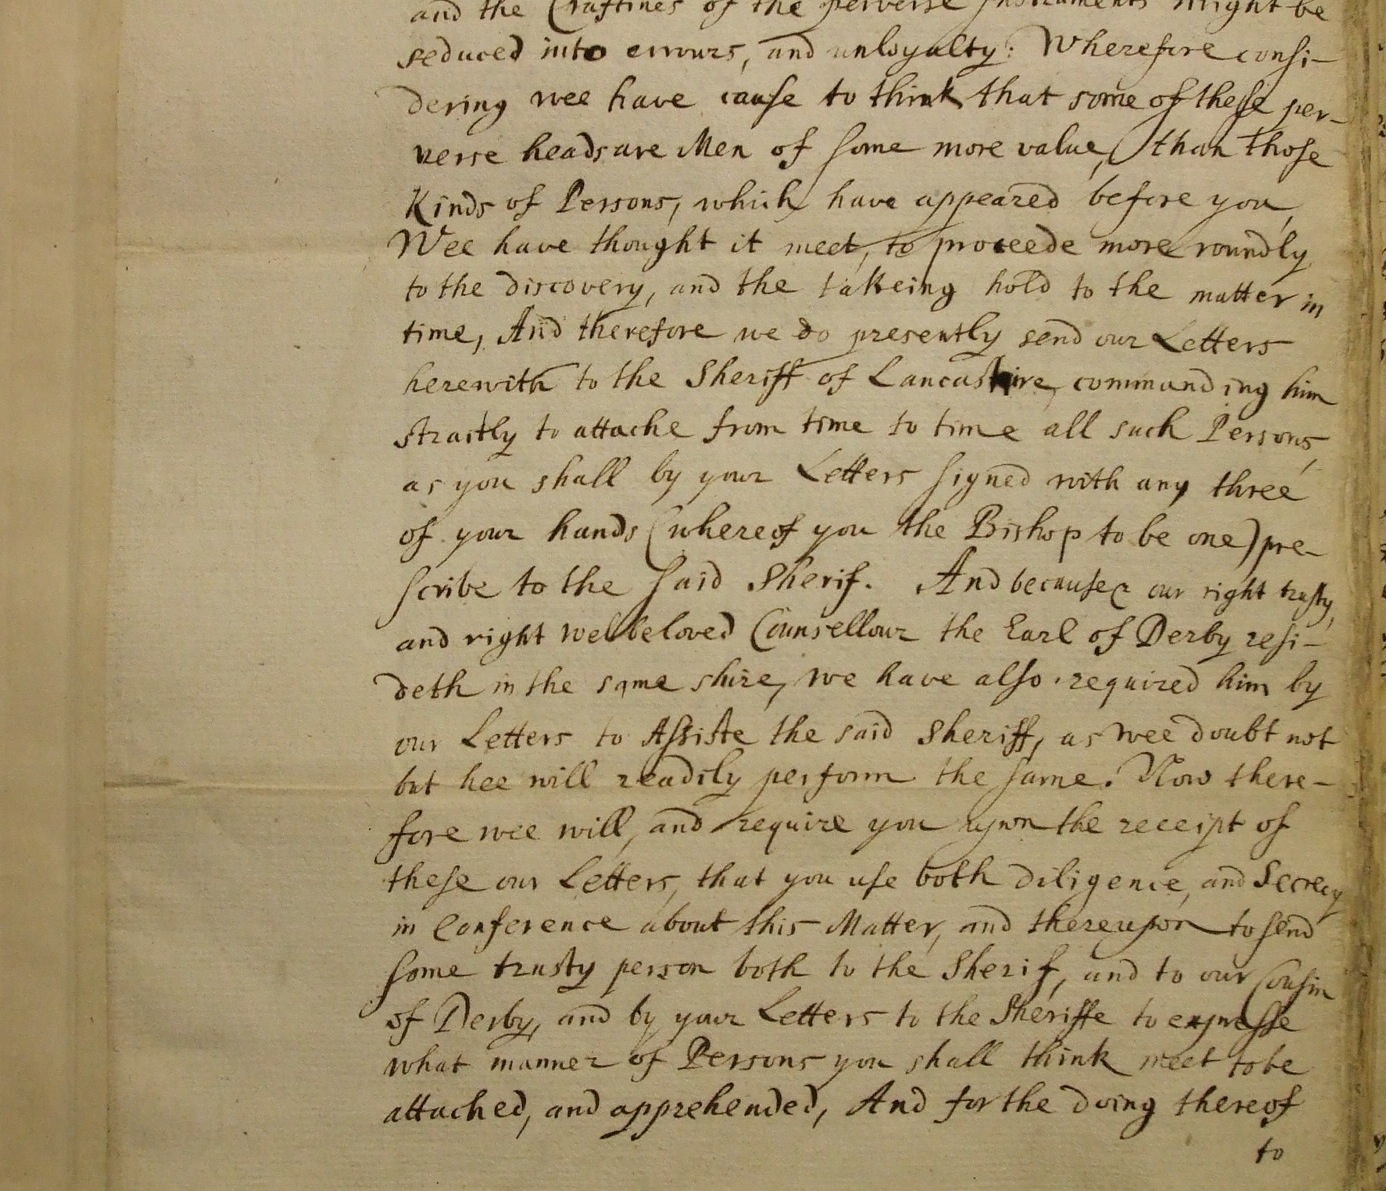 and the Craftines of the perverse Instruments might be
seduced into errours, and unloyalty: Wherefore consi-
dering wee have cause to think that some of these per-
verse heads are Men of some more value, than those
Kinds of Persons, which have appeared before you,
Wee have thought it meet, to proceede more roundly
to the discovery, and the takeing hold to the matter in
time, And therefore we do presently send our Letters
herewith to the Sheriff of Lancashire, commanding him
straitly to attache from time to time all such Persons,
as you shall by your Letters signed with any three
of your hands (whereof you the Bishop to be one) pre-
scribe to the said Sherif. And because our right trusty,
and right welbeloved Counsellour the Earl of Derby resi-
deth in the same shire, we have also required him by
our Letters to Assiste the said Sheriff, as wee doubt not
but hee will readily perform the same. Now there-
fore wee will, and require you upon the receipt of
these our Letters, that you use both diligence, and Secrecy
in Conference about this Matter, and thereupon to send
some trusty person both to the Sherif, and to our Cousin
of Derby, and by your Letters to the Sheriffe to expresse
what manner of Persons you shall think meet to be
attached, and apprehended, And for the doing thereof
to